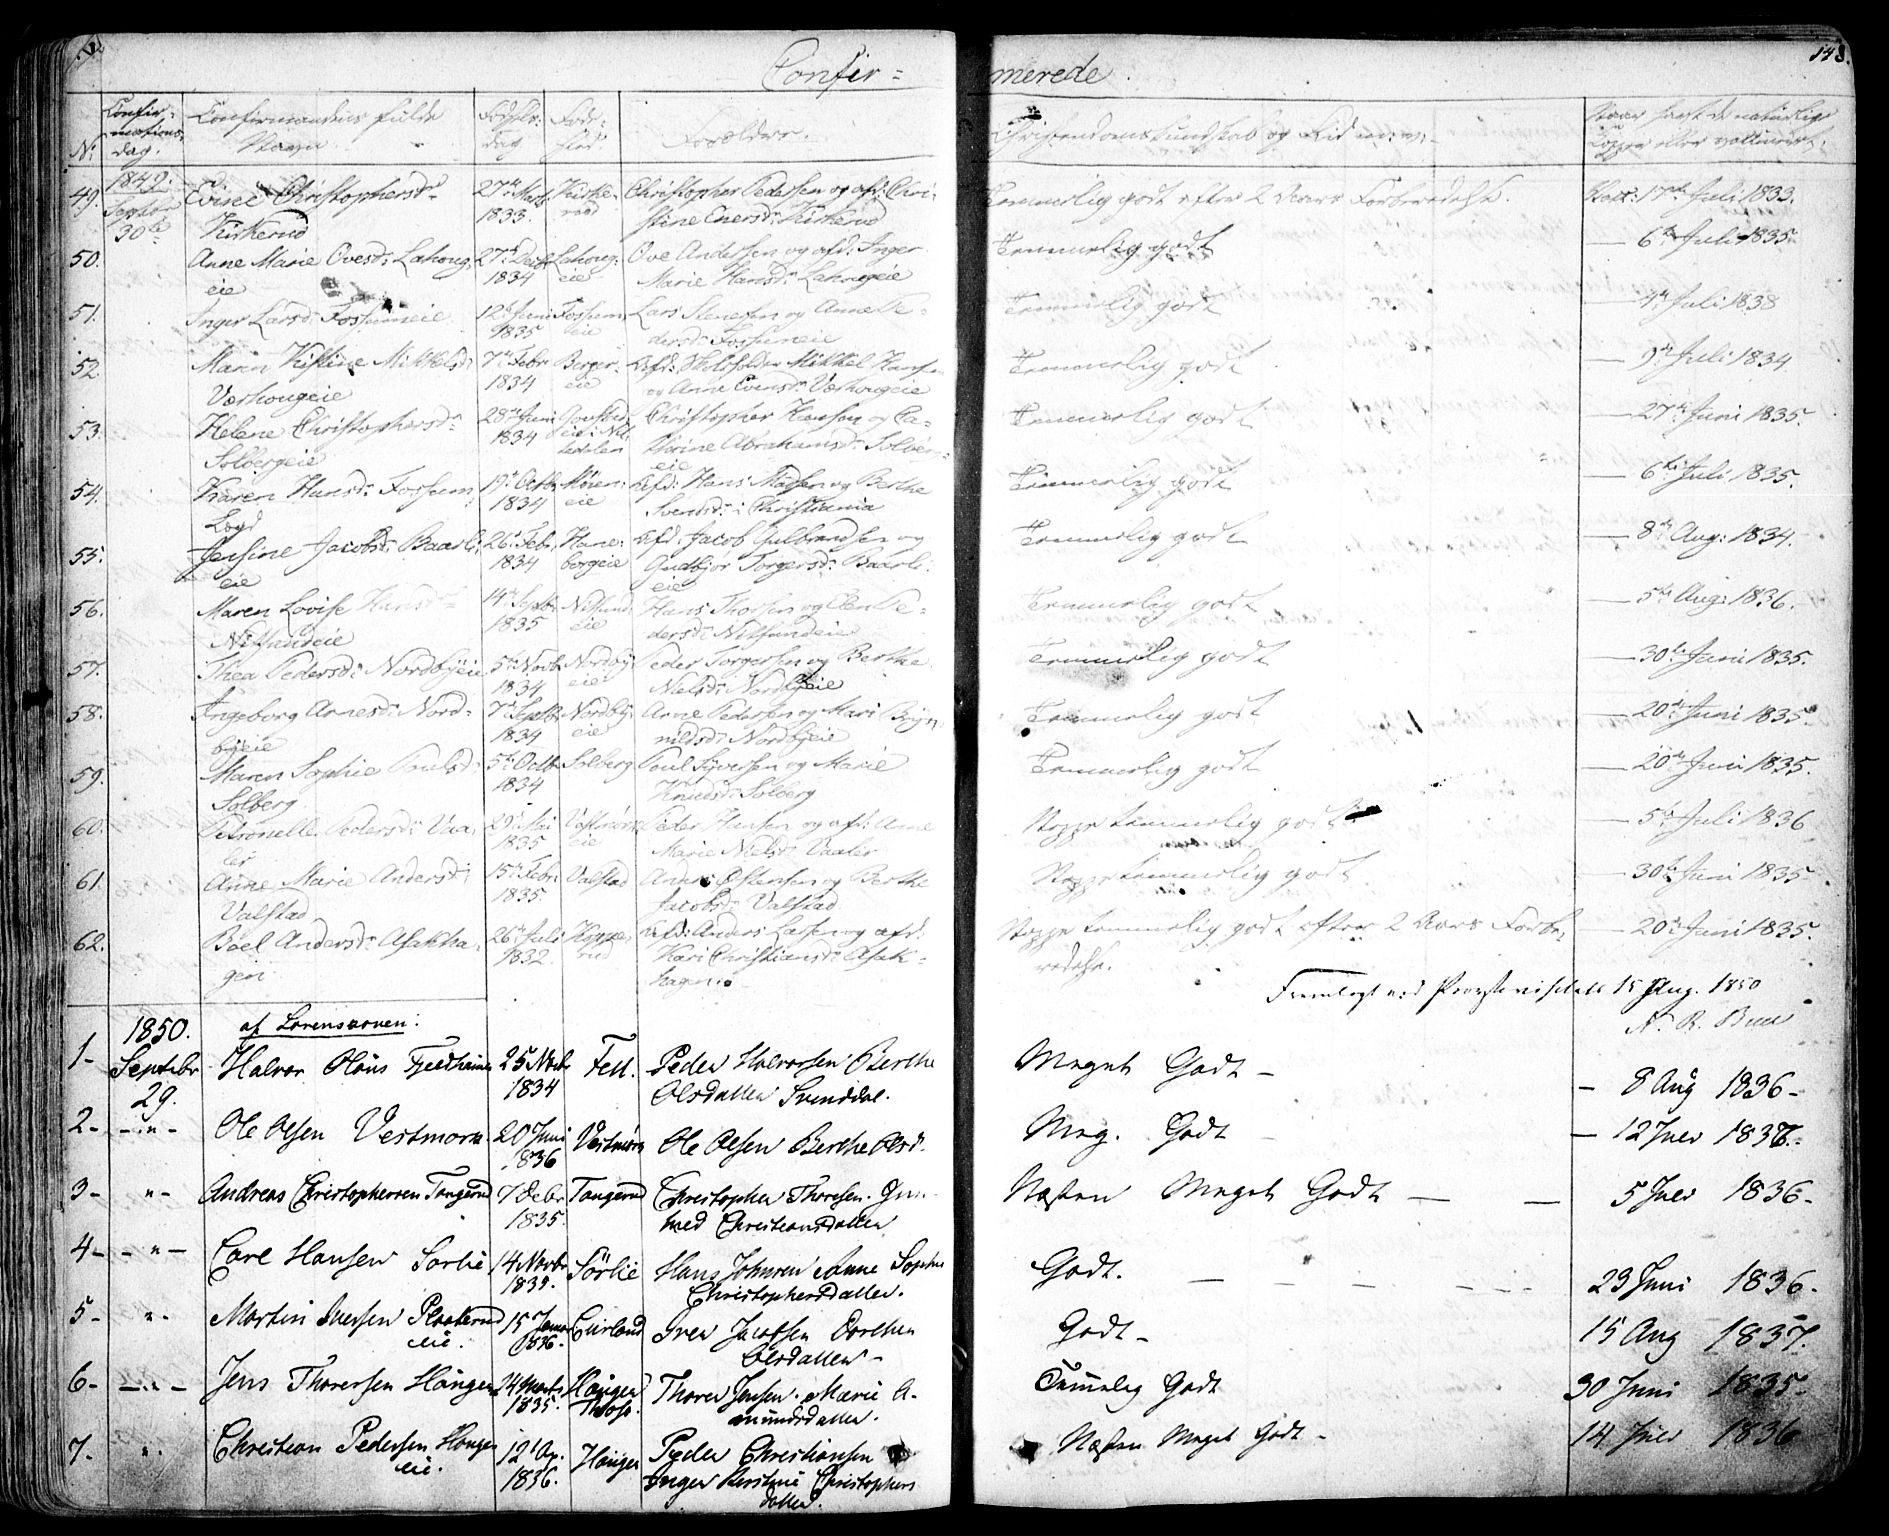 Confir=
merede.
148.
N:
Confir-
mations
dag.
Confirmandens fulde
Navn
Fødsels-
Dag
Føde-
sted.
Forældre.
Christendomskundskab og Flid m: v:
1849.
Septbr
30te
49. Christophersd:
Kirkerud
27de
1833.
Christopher Pedersen og afd: Chri-
stine Kirkerud
Temmelig godt efter 2 Aars Forberedelse.
17de Juli 1833.
50. Anne Marie Ovesd: Lahoug-
eie
27de
1834
Lahoug-
eie
Ove Andersen og afd: Inger
Marie Hansd: Lahougeie
Temmelig godt
— 6te Juli 1835
51. Inger Larsd: Fossumeie
12te Juni
1835
Fossum-
eie
Lars Stenersen og Anne Pe-
dersd: Fossumeie
Temmelig godt
— 4de Juli 1838
52. Maren Kistine Mikkelsd:
7de Febr
1834
Berger-
eie
Mikkel Hansen
og Anne Evensd:
Temmelig godt
— 9de Juli 1834
53. Helene Christophersd:
Solbergeie
28de Juni
1834
Christopher Hansen og Ca-
thrine Abrahamsd: Solber-
eie
Temmelig godt
— 27de Juni 1835.
54. Karen Hansd: Fossum
19de Octbr
1834
eie
Afd: Hans Madsen og Berthe
Svendsd: i Christiania
Temmelig godt
— 6te Juli 1835.
55. Jensine Jacobsd: Baarli-
eie
26de Febr.
1834
Hane-
borgeie
Afd: Jacob Gulbrandsen og
Gudbjør Torgersd: Baarli-
eie
Temmelig godt
— 8de Aug: 1834.
56. Maren Lovise Hansd:
Nitsundeie
14de Septbr
1835
Nitsund-
eie
Hans Thorsen og Elen Pe-
dersd: Nitsundeie
Temmelig godt
— 5te Aug: 1836.
57. Thea Pedersd: Nordbyeie
5te Novb
1834
Nordby-
eie
Peder Torgersen og Berthe
Nielsd: Nordbyeie
Temmelig godt
— 30te Juni 1835.
58. Ingeborg Arnesd: Nord-
byeie
7de Septbr
1834
Nordby-
eie
Arne Pedersen og Mari Bryn-
nildsd: Nordbyeie
Temmelig godt
— 20de Juni 1835.
59. Maren Sophie Poulsd:
Solberg
5te Octbr
1834
Solberg
Poul Syversen og Marie
Knudsd: Solberg
Temmelig godt
— 20de Juni 1835.
60. Petronelle Pedersd: Vaa-
ler
29de Mai
1835
eie
Peder Hansen og afd: Anne
Marie Nielsd: Vaaler
Neppe temmelig godt
— 5te Juli 1836
61. Anne Marie Andersd:
Valstad
15de Febr:
1835
Valstad
Anders Østensen og Berthe
Jacobsd: Valstad
Neppe temmelig godt
— 30te Juni 1835
62. Boel Andersd: Asakha-
gen
26de Juli
1832.
Koppe-
rud
Afd: Anders Larsen og afd:
Kari Christiansd: Asak-
hagen.
Neppe temmelig godt efter 2 Aars Forbe-
redelse.
— 20de Juni 1835.
Fremlagt ved Provstevisitats 15 Aug. 1850
N. R. Bull
1850.
af Lørenskoven:
1- Septebr
29.
Halvor Olaus Fjeldhammer
25 Novbr
1834
Fell.
Peder Halvorsen Berthe
Olsdatter Svenddal.
Meget Godt —
— 8 Aug 1836-
2- -"- Ole Olsen Vestmoen
20 Juni
1836
Vestmoen
Ole Olsen Berthe Olsd.
Meg. Godt
— 12 Juli 1836.-
3- "- Andreas Christophersen Tangerud
7 Debr
1835.
Tangerud
Christopher Thoresen. Gun-
hild Christiansdatter
Næsten Meget Godt — —
5 Juli 1836-
4- -"- Carl Hansen Sørlie
14 Novbr
1835.
Sörlie
Hans Johnsen Anne Sophie
Christophersdatter.
Godt.
23 Juni 1836.
5- "- Martin Iversen
eie.
15 Januar
1836.
Iver Jacobsen Dorthea
Olsdatter-
Godt-
15 Aug 1837.
6- -"- Jens Thorersen Hanger
24 Marts
1835.
Hanger
Thorer Jensen. Marie A-
mundsdatter.
Temmelig Godt
30 Juni 1835-
7- "- Christian Pedersen Hanger
eie.
12' Ap.
1836.
Hanger
Peder Christiansen
Inger Kerstine Christophers
datter.
Næsten Meget Godt-
14 Juli 1836